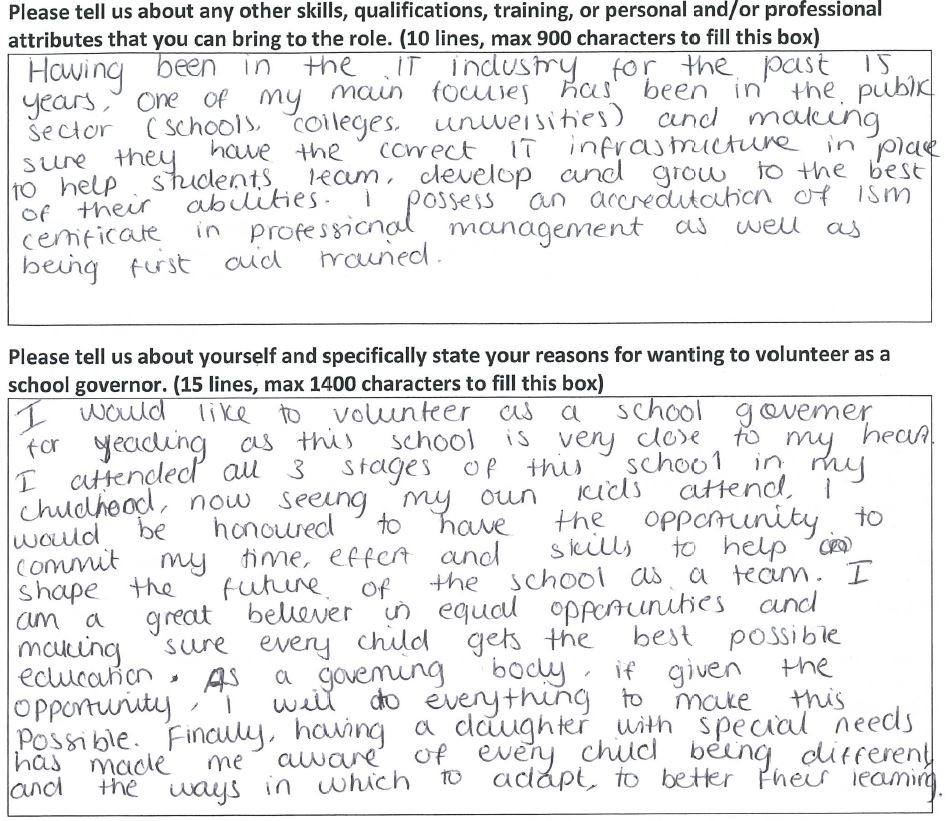 Please tell us about any other skills, qualifications, training, or personal and/or professional
attributes that you can bring to the role. (10 lines, max 900 characters to fill this box)
Having been in the IT industry for the past 15
years, one of my main focuses has been in the public
sector (schools, colleges, universities) and making
sure they have the correct IT infrastructure in place
to help students learn, develop and grow to the best
of their abilities. I possess an accreditation of ISM
certificate in professional management as well as
being first aid trained.
Please tell us about yourself and specifically state your reasons for wanting to volunteer as a
school governor. (15 lines, max 1400 characters to fill this box)
I would like to volunteer as a school governer
for yeading as this school is very close to my heart.
I attended all 3 stages of this school in my
childhood, now seeing my own kids attend, I
would be honoured to have the opportunity to
commit my time, effort and skills to help
shape the future of the school as a team. I
am a great believer in equal opportunities and
making sure every child gets the best possible
education. As a governing body, if given the
opportunity, I will do everything to make this
possible. Finally, having a daughter with special needs
has made me aware of every child being different
and the ways in which to adapt, to better their learning.